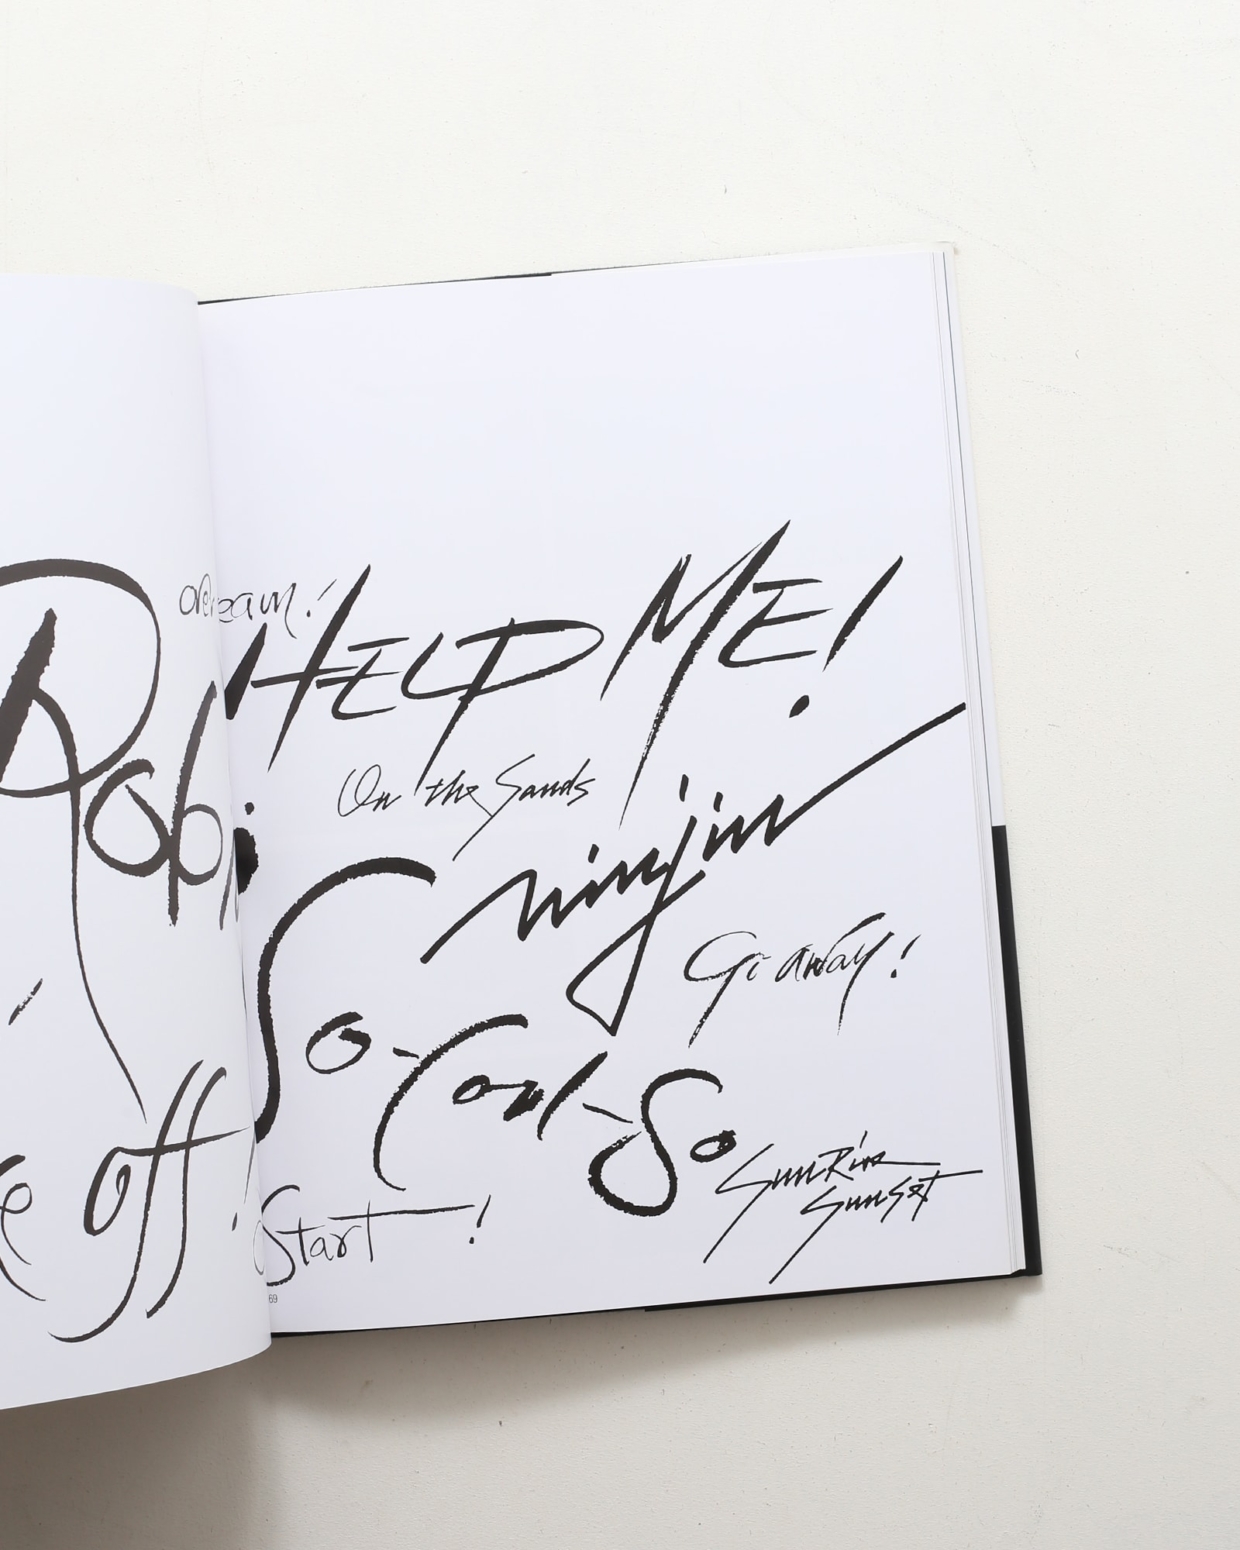 Robi
off
HELP ME!
On the Sands
ninjin
Go away!
So-Cool-So
SunRise
Sunset
Start!
69